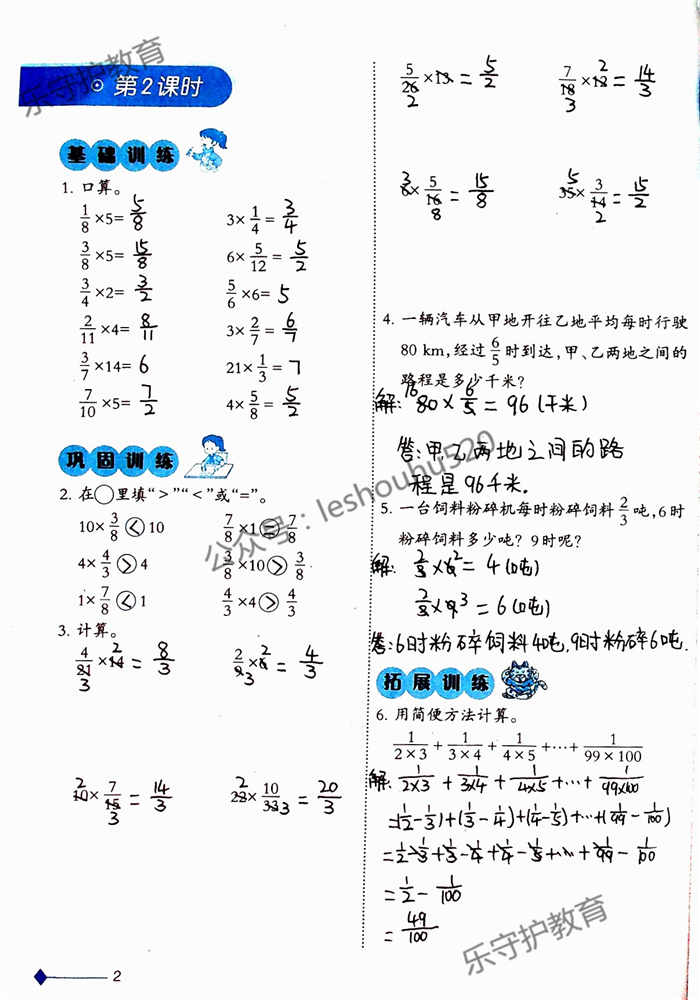 第2课时
基础训练
1. 口算。
1/8×5=5/8 3×1/4=3/4
3/8×5=15/8 6×5/12=5/2
3/4×2=3/2 5/6×6=5
2/11×4=8/11 3×2/7=6/7
3/7×14=6 21×1/3=7
7/10×5=7/2 4×5/8=5/2
巩固训练
2. 在○里填“>”“<”或“=”。
10×3/8<10 7/8×1=7/8
4×4/3>4 3/8×10>3/8
1×7/8<1 4/3×4>4/3
3. 计算。
4/21×14=8/3 2/9×6=4/3
3 2 3
10×7/15=14/3 22×10/33=20/3
2 3 2 3
5/26×13=5/2 7/18×12=14/3
2 3 2
6×5/16=15/8 35×3/14=15/2
3 8 5 2
4. 一辆汽车从甲地开往乙地平均每时行驶
80 km,经过6/5时到达,甲、乙两地之间的
路程是多少千米?
解:80×6/5=96(千米)
16
答:甲,乙两地之间的路
程是96千米.
5. 一台饲料粉碎机每时粉碎饲料2/3吨,6时
粉碎饲料多少吨?9时呢?
解:2/3×6=4(吨)
2
2/3×9=6(吨)
3
答:6时粉碎饲料4吨,9时粉碎6吨.
拓展训练
6. 用简便方法计算。
1/(2×3)+1/(3×4)+1/(4×5)+…+1/(99×100)
解:1/(2×3)+1/(3×4)+1/(4×5)+…+1/(99×100)
=(1/2-1/3)+(1/3-1/4)+(1/4-1/5)+…+(1/99-1/100)
=1/2-1/3+1/3-1/4+1/4-1/5+…+1/99-1/100
=1/2-1/100
=49/100
2
乐守护教育
公众号:leshouhu520
乐守护教育